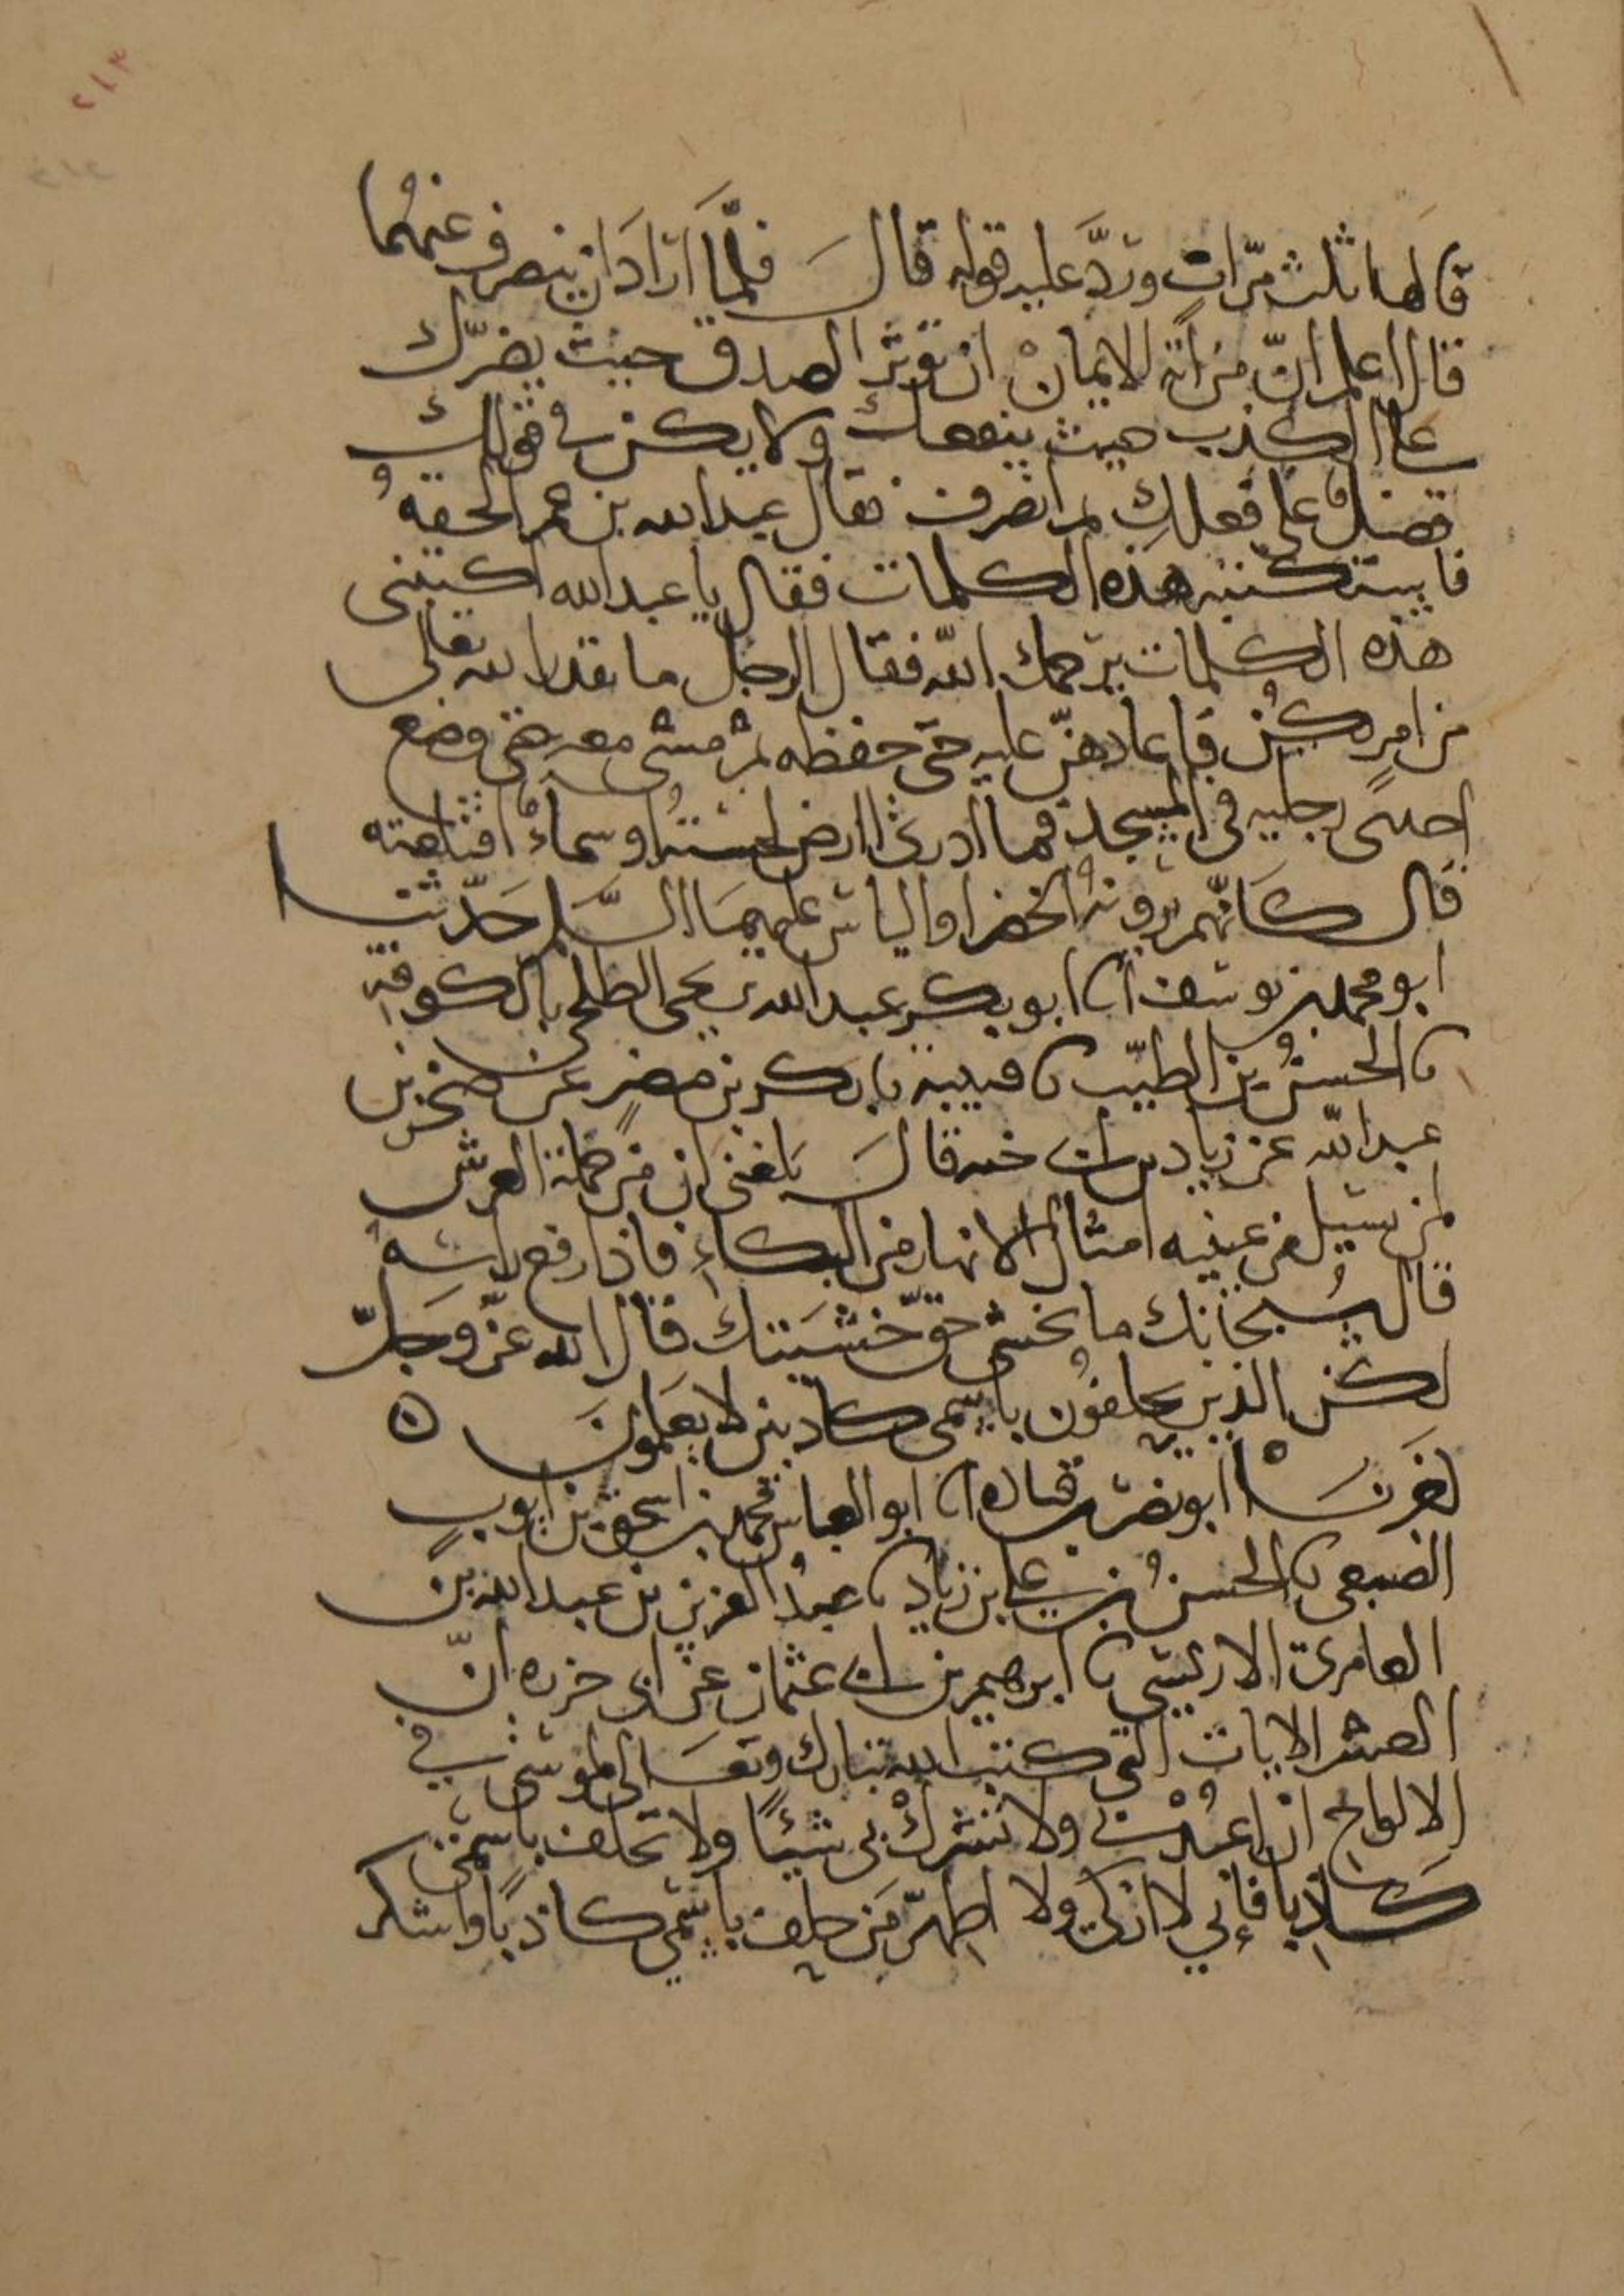 ٢١٣
قالها ثلث مرّات وردّ عليه قوله قال فلمّا اراد ان ينصرف عنهما
قال اعلم انّ من اية الايمان ان تؤثر الصدق حيث يضرّك
على الكذب حيث ينفعك ولا يكن في قولك
فضل على فعلك ثم انصرف فقال عبد الله بن عمر الحقه
فاستكتبه هذه الكلمات فقال يا عبد الله اكتبني
هذه الكلمات يرحمك الله فقال الرجل ما يقدر الله تعالى
من امر يكن فاعادهنّ عليه حتى حفظه ثم مشى معه حتى وضع
احدى رجليه في المسجد فما ادري ا ارض لحسته او سماء اقتلعته
قال كانّهم يرونه الخضر او الياس عليهما السلم حدّثنا
ابو محمد بن يوسف انا ابو بكر عبد الله بن يحيى الطلحي بالكوفة
نا الحسن بن الطيّب نا قتيبة نا بكر بن مضر عن صخر بن
عبد الله عن زياد بن ابي قال بلغني ان من حملة العرش
لمن يسيل من عينيه امثال الانهار من البكاء فاذا رفع راسه
قال سبحانك ما تخشى حقّ خشيتك قال الله عزّ وجلّ
لكن الذين يحلفون باسمي كاذبين لا يعلمون ه
اخبرنا ابو نصر بن قتادة انا ابو العباس محمد بن اسحق بن ايوب
الضبعي نا الحسن بن علي بن زياد نا عبد العزيز بن عبد الله بن
العامري الاويسي نا ابرهيم بن عثمان عن ابي حزره انّ
العشر الايات التي كتب الله تبارك وتعالى لموسى في
الالواح ان اعبدني ولا تشرك بي شيئا ولا تحلف باسمي
كاذبا فإني لا ازكي ولا اطهّر من حلف باسمي كاذبا واشكر